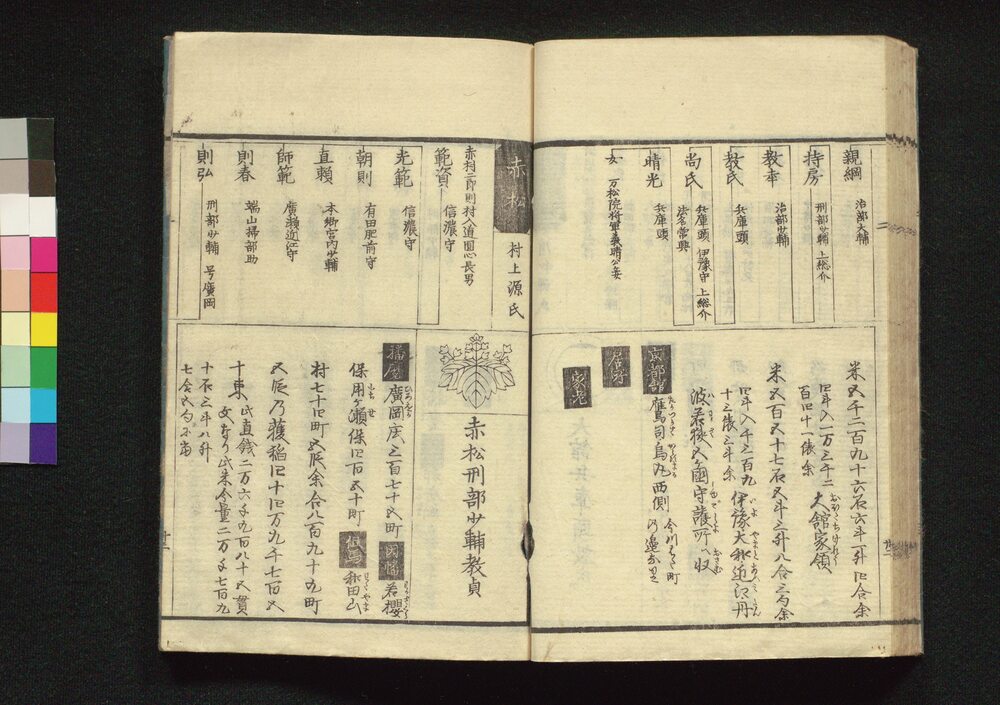 親綱 治部大輔
持房 刑部少輔 上総介
教幸 治部少輔
教氏 兵庫頭
尚氏 兵庫頭 伊豫守 上総介
法名常興
晴光 兵庫頭
女 万松院将軍義晴公妾
米五千二百九十六石六斗一升四合余
四斗入一万三千二
百四十一俵余
大舘家領
米五百五十七石五斗三升八合三勺余
四斗入千三百九
十三俵三斗余
伊豫大和近江丹
波若狭五箇守護所ヘ収
京都舘
鷹司烏丸西側
居所
家老
赤松
村上源氏
赤松二郎則村入道圓心長男
範資 信濃守
光範 信濃守
朝則 有田肥前守
直頼 本郷宮内少輔
師範 廣瀬近江守
則春 端山掃部助
則弘 刑部少輔 号廣岡
赤松刑部少輔教貞
播磨
廣岡庄三百七十五町
因幡
若櫻
保用ヶ瀬保四百五十町
但馬
和田山
村七十四町五段余合八百九十九町
五段乃穫稲四十四万九千七百五
十束
此直錢二万六千九百八十五貫
文
此米今量二万千七百九
十石三斗八升
七合